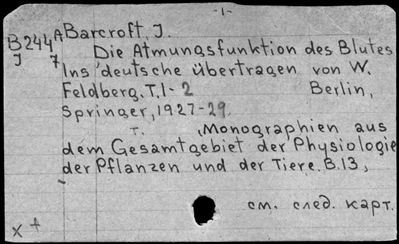 -1-
B244A Barcroft, J.
J 7 Die Atmungsfunktion des Blutes
Ins deutsche übertragen von W.
Feldberg. T. 1-2 Berlin,
Springer, 1927-29.
T. , Monographien aus
dem Gesamtgebiet der Physiologie
der Pflanzen und der Tiere. B.13,
см. след. карт.
x +